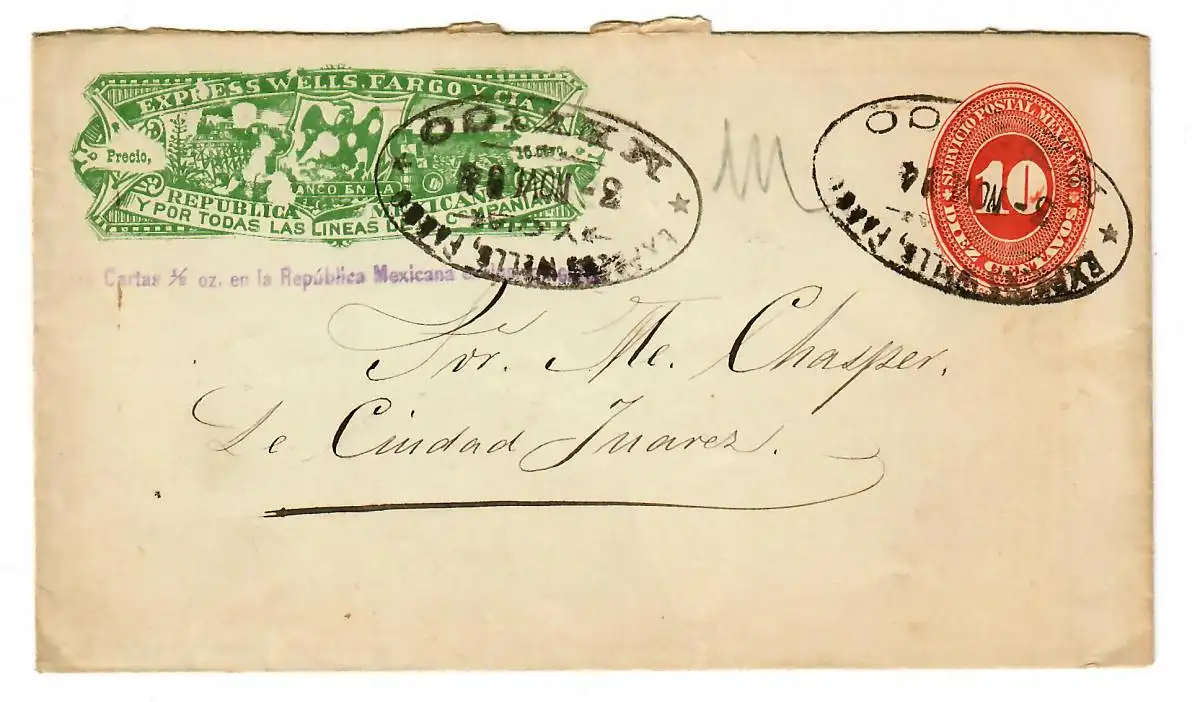 EXPRESS WELLS, FARGO Y CIA.
Precio,
FRANCO EN LA
REPUBLICA MEXICANA
Y POR TODAS LAS LINEAS DE COMPANIA
Cartas ½ oz. en la República Mexicana
MEXICO
NOV
3-
EXPRESS WELLS, FARGO
SERVICIO POSTAL MEXICANO
10
DIEZ CENTAVOS
MEXICO
3- NOV 94
EXPRESS WELLS, FARGO
Sor. Mc. Chasper.
De Ciudad Juarez.